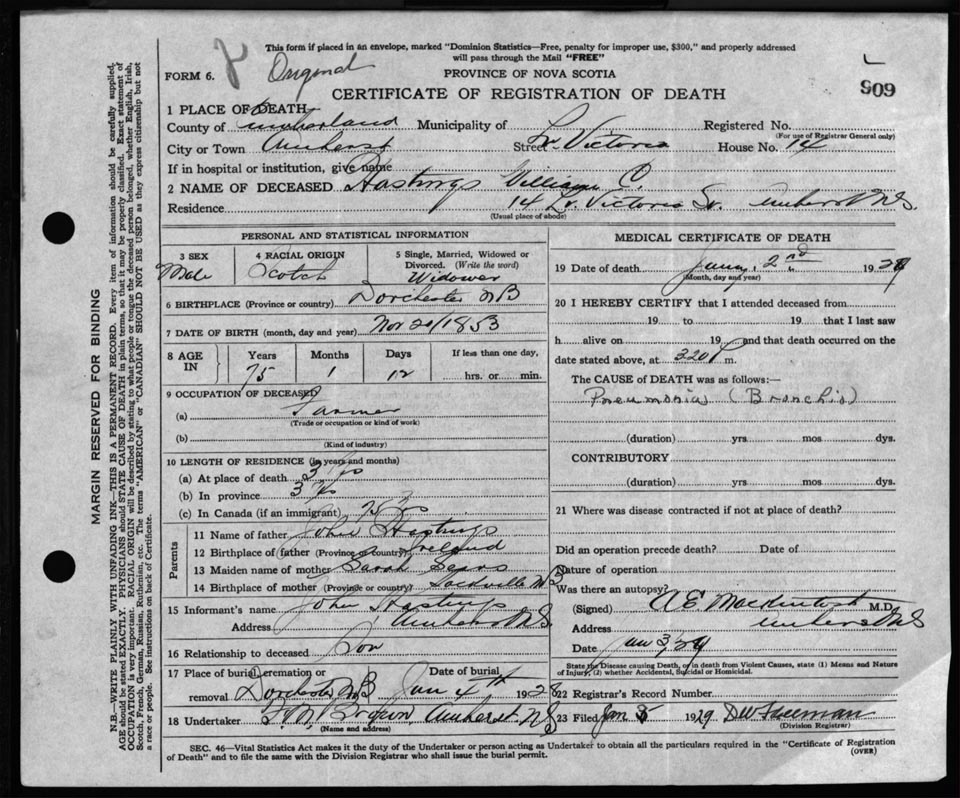 This form if placed in an envelope, marked "Dominion Statistics—Free, penalty for improper use, $300," and properly addressed
will pass through the Mail "FREE"
FORM 6. Original
PROVINCE OF NOVA SCOTIA
CERTIFICATE OF REGISTRATION OF DEATH
909
1 PLACE OF DEATH—
County of Cumberland Municipality of Registered No.
(For use of Registrar General only)
City or Town Amherst Street Lr Victoria House No. 14
If in hospital or institution, give name
2 NAME OF DECEASED Hastings William C.
Residence 14 Lr. Victoria St. Amherst N.S.
(Usual place of abode)
PERSONAL AND STATISTICAL INFORMATION
3 SEX
Male
4 RACIAL ORIGIN
Scotch
5 Single, Married, Widowed or
Divorced. (Write the word)
Widower
6 BIRTHPLACE (Province or country) Dorchester N B
7 DATE OF BIRTH (month, day and year) Nov 20/1853
8 AGE IN
Years Months Days If less than one day,
75 1 12 hrs. or min.
9 OCCUPATION OF DECEASED
(a) Farmer
(Trade or occupation or kind of work)
(b)
(Kind of industry)
10 LENGTH OF RESIDENCE (in years and months)
(a) At place of death 3 yrs
(b) In province 3 yrs
(c) In Canada (if an immigrant) 75 yrs
Parents
11 Name of father John Hastings
12 Birthplace of father (Province or country) Ireland
13 Maiden name of mother Sarah Sears
14 Birthplace of mother (Province or country) Sackville
15 Informant's name John Hastings
Address Amherst N.S.
16 Relationship to deceased Son
17 Place of burial, cremation or Date of burial
removal Dorchester NB Jan 4th 1928
18 Undertaker Brown, Amherst, NS
(Name and address)
MEDICAL CERTIFICATE OF DEATH
19 Date of death January 2nd 1929
(Month, day and year)
20 I HEREBY CERTIFY that I attended deceased from
19 to 19 that I last saw
h alive on 19 and that death occurred on the
date stated above, at 320 P m.
The CAUSE OF DEATH was as follows:—
Pneumonia (Bronchio)
(duration) yrs mos dys.
CONTRIBUTORY
(duration) yrs mos dys.
21 Where was disease contracted if not at place of death?
Did an operation precede death? Date of
Nature of operation
Was there an autopsy?
(Signed) A E Mackintosh M.D.
Address Amherst NS
Date Jan 3, 29
State the Disease causing Death, or in death from Violent Causes, state (1) Means and Nature
of Injury, (2) whether Accidental, Suicidal or Homicidal.
22 Registrar's Record Number
23 Filed Jan 5 1929 Freeman
(Division Registrar)
SEC. 46—Vital Statistics Act makes it the duty of the Undertaker or person acting as Undertaker to obtain all the particulars required in the "Certificate of Registration
of Death" and to file the same with the Division Registrar who shall issue the burial permit.
(OVER)
MARGIN RESERVED FOR BINDING
N.B.—WRITE PLAINLY WITH UNFADING INK—THIS IS A PERMANENT RECORD. Every item of information should be carefully supplied.
AGE should be stated EXACTLY. PHYSICIANS should STATE CAUSE OF DEATH in plain terms, so that it may be properly classified. Exact statement of
OCCUPATION is very important. RACIAL ORIGIN will be described by stating to what people or tongue the deceased person belonged, whether English, Irish,
Scotch, French, German, Russian, Ruthenian, etc. The terms "AMERICAN" or "CANADIAN" SHOULD NOT BE USED as they express citizenship but not
a race or people. See instructions on back of Certificate.